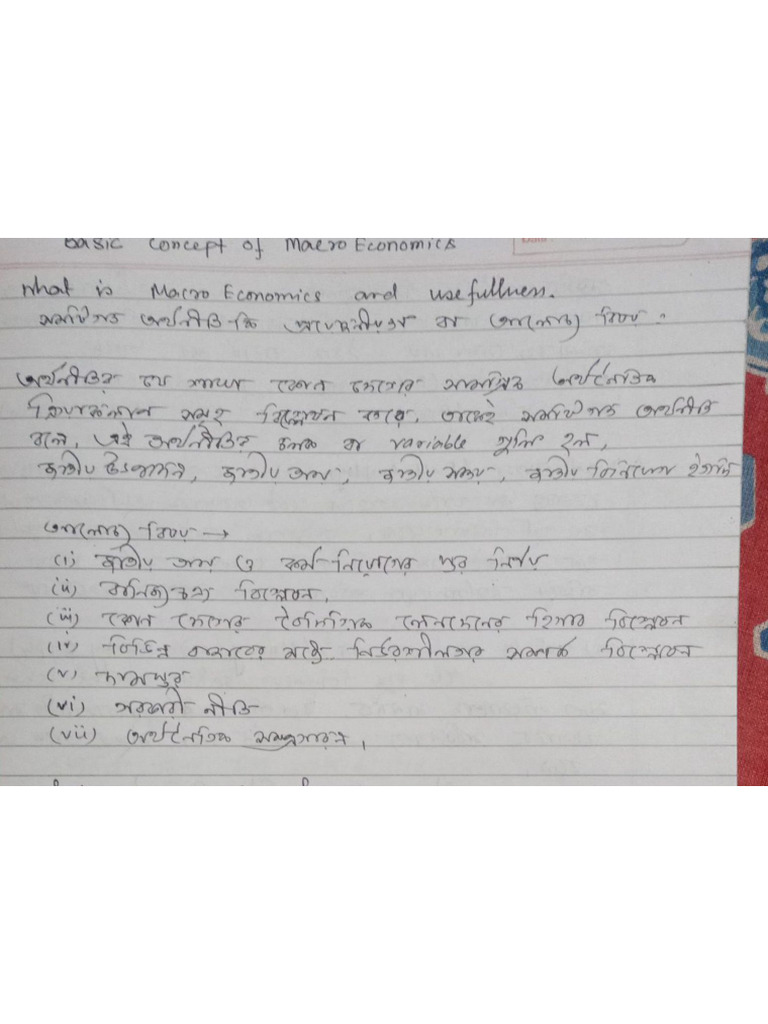 Basic Concept of Macro Economics
What is Macro Economics and usefullness.
সমষ্টিগত অর্থনীতি কি প্রয়োজনীয়তা বা আলোচ্য বিষয় :
অর্থনীতির যে শাখা কোন দেশের সামগ্রিক অর্থনৈতিক
ক্রিয়াকলাপ সমূহ বিশ্লেষন করে, তাকেই সমষ্টিগত অর্থনীতি
বলে, এই অর্থনীতির চলক বা variable গুলি হল,
জাতীয় উৎপাদন, জাতীয় আয়, জাতীয় সঞ্চয়, জাতীয় বিনিয়োগ ইত্যাদি
আলোচ্য বিষয় →
(i) জাতীয় আয় ও কর্ম নিয়োগের স্তর নির্ণয়
(ii) বানিজ্যচক্র বিশ্লেষন,
(iii) কোন দেশের বৈদেশিক লেনদেনের হিসাব বিশ্লেষন
(iv) বিভিন্ন বাজারের মধ্যে নির্ভরশীলতার সম্পর্ক বিশ্লেষন
(v) দামস্তর
(vi) সরকারী নীতি
(vii) অর্থনৈতিক সম্প্রসারন,